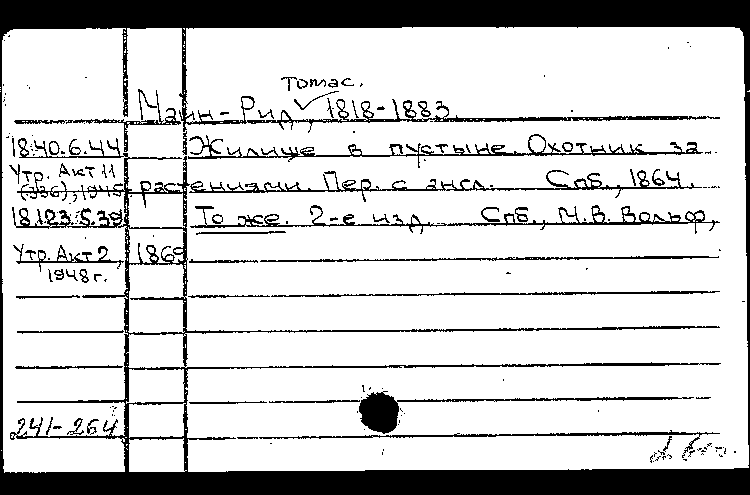 Томас.
Майн-Рид, 1818-1883.
18.40.6.44 Жилище в пустыне. Охотник за
Утр. Акт 11
(936), 1945 растениями. Пер. с англ. Спб., 1864.
18.123.5.39 То же. 2-е изд. Спб., М.В. Вольф,
Утр. Акт 2, 1869.
1948 г.
241-264